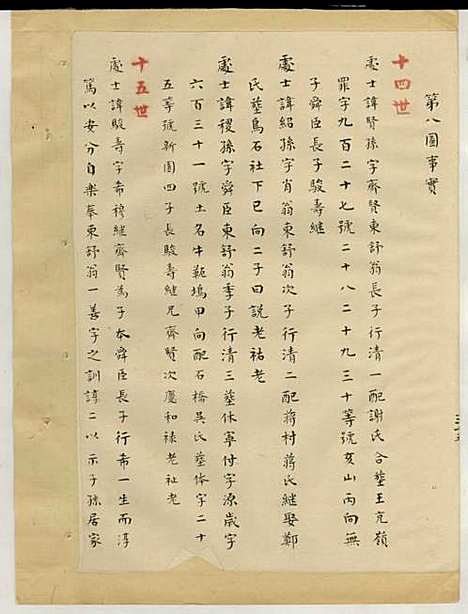 第八圖事實
十四世
處士諱賢孫字齊賢東舒翁長子行清一配謝氏合塟王充嶺
罪字九百二十七號二十八二十九三十等號亥山丙向無
子舜臣長子駿壽繼
處士諱紹孫字肖翁東舒翁次子行清二配蔣村蔣氏繼娶鄭
氏塟烏石社下巳向二子曰説老祐老
處士諱稷孫字舜臣東舒翁季子行清三塟休寕付字源歲字
六百三十一號土名牛軛塢甲向配石橋吳氏塟体字二十
五等號新園四子長駿壽繼兄齊賢次慶和祿老祉老
十五世
處士諱駿壽字希穆繼齊賢爲子本舜臣長子行希一生而淳
篤以安分自樂奉東舒翁一善字之訓諱二以示子孫居家